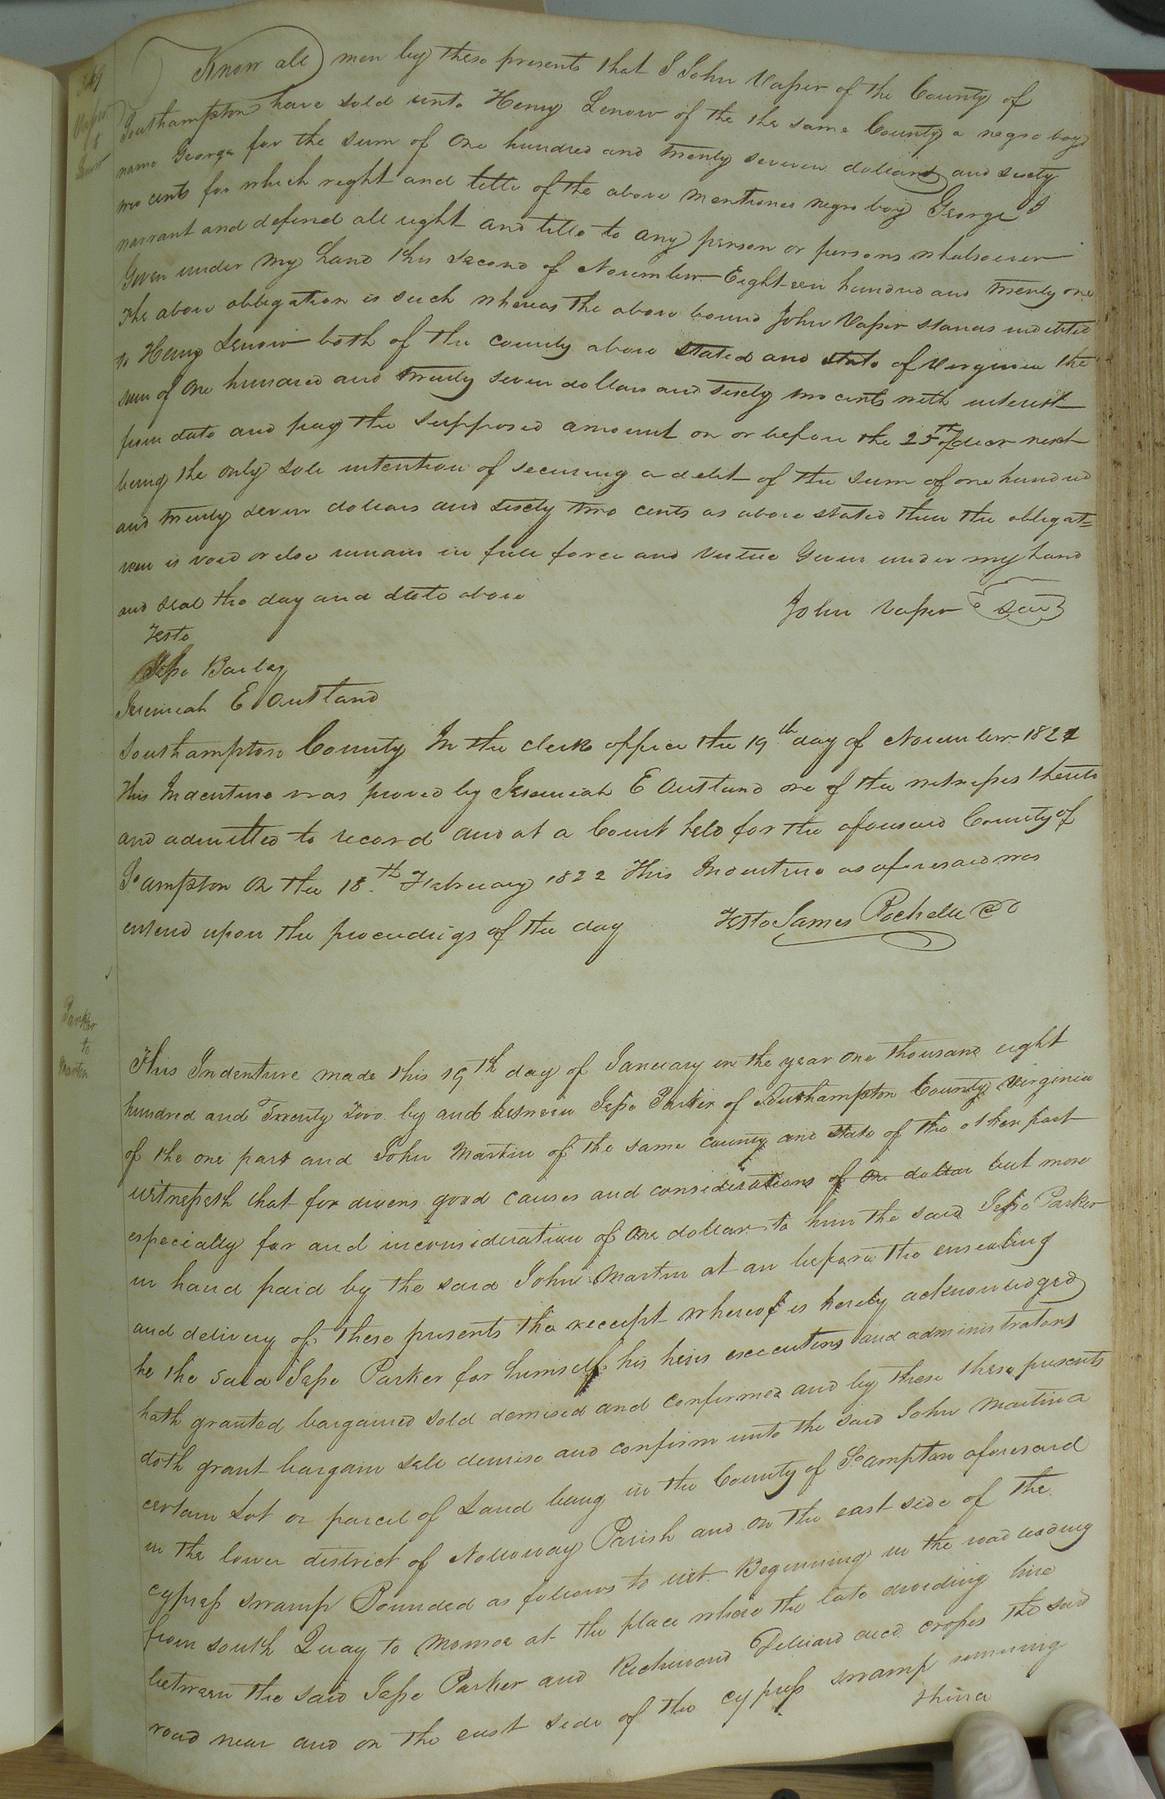 349
Vasser
to
Lenow
Know all men by these presents that I John Vaser of the County of
Southampton have sold unto Henry Lenow of the the same County a negro boy
name George for the sum of One hundred and twenty seven dollars and sixty
two cents for which right and title of the above mentioned negro boy George I
warrant and defend all right and title to any person or persons whatsoever
Given under my hand this second of November Eighteen hundred and twenty one
The above obligation is such whereas the above bound John Vaser stands indebted
to Henry Lenow both of the county above stated and state of Virginia the
sum of One hundred and twenty seven dollars and sixty two cents with interest
from date and pay the supposed amount on or before the 25th of decr next
being the only sole intention of securing a debt of the sum of one hundred
and twenty seven dollars and sixty two cents as above stated then the obligat=
ion is void or else remain in full force and virtue Given under my hand
and seal the day and date above
John Vaser seal
Teste
Jesse Barlay
Jeremiah E Outland
Southampton County In the clerks office the 19th day of November 1821
This Indenture was proved by Jeremiah E Outland one of the witnesses thereto
and admitted to record and at a Court held for the aforesaid County of
So ampton on the 18th February 1822 This Indenture as aforesaid was
entered upon the proceedings of the day
Teste James Rochelle CC
Parker
to
Martin
This Indenture made this 19th day of January in the year one thousand eight
hundred and Twenty Two by and between Jesse Parker of Southampton County Virginia
of the one part and John Martin of the same county and state of the other part
witnesseth that for divers good causes and considerations of one dollar but more
especially for and inconsideration of one dollar to him the said Jesse Parker
in hand paid by the said John Martin at an before the ensealing
and delivery of these presents the receipt whereof is hereby acknowledged
he the said Jesse Parker for himself his heirs executors and administrators
hath granted bargained sold demised and confirmed and by these these presents
doth grant bargain sell demise and confirm unto the said John Martin a
certain Lot or parcel of Land being in the County of So ampton aforesaid
in the lower district of Nottoway Parish and on the east side of the
cypress swamp Bounded as follows to wit Beginning in the road leading
from south Quay to Monroe at the place where the late dividing line
between the said Jesse Parker and Richmond decd crosses the said
road near and on the east side of the cypress swamp running
thence